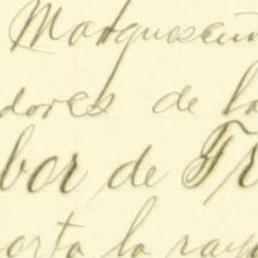 Marquesun
dores de la
bor de Fr
orta la raya